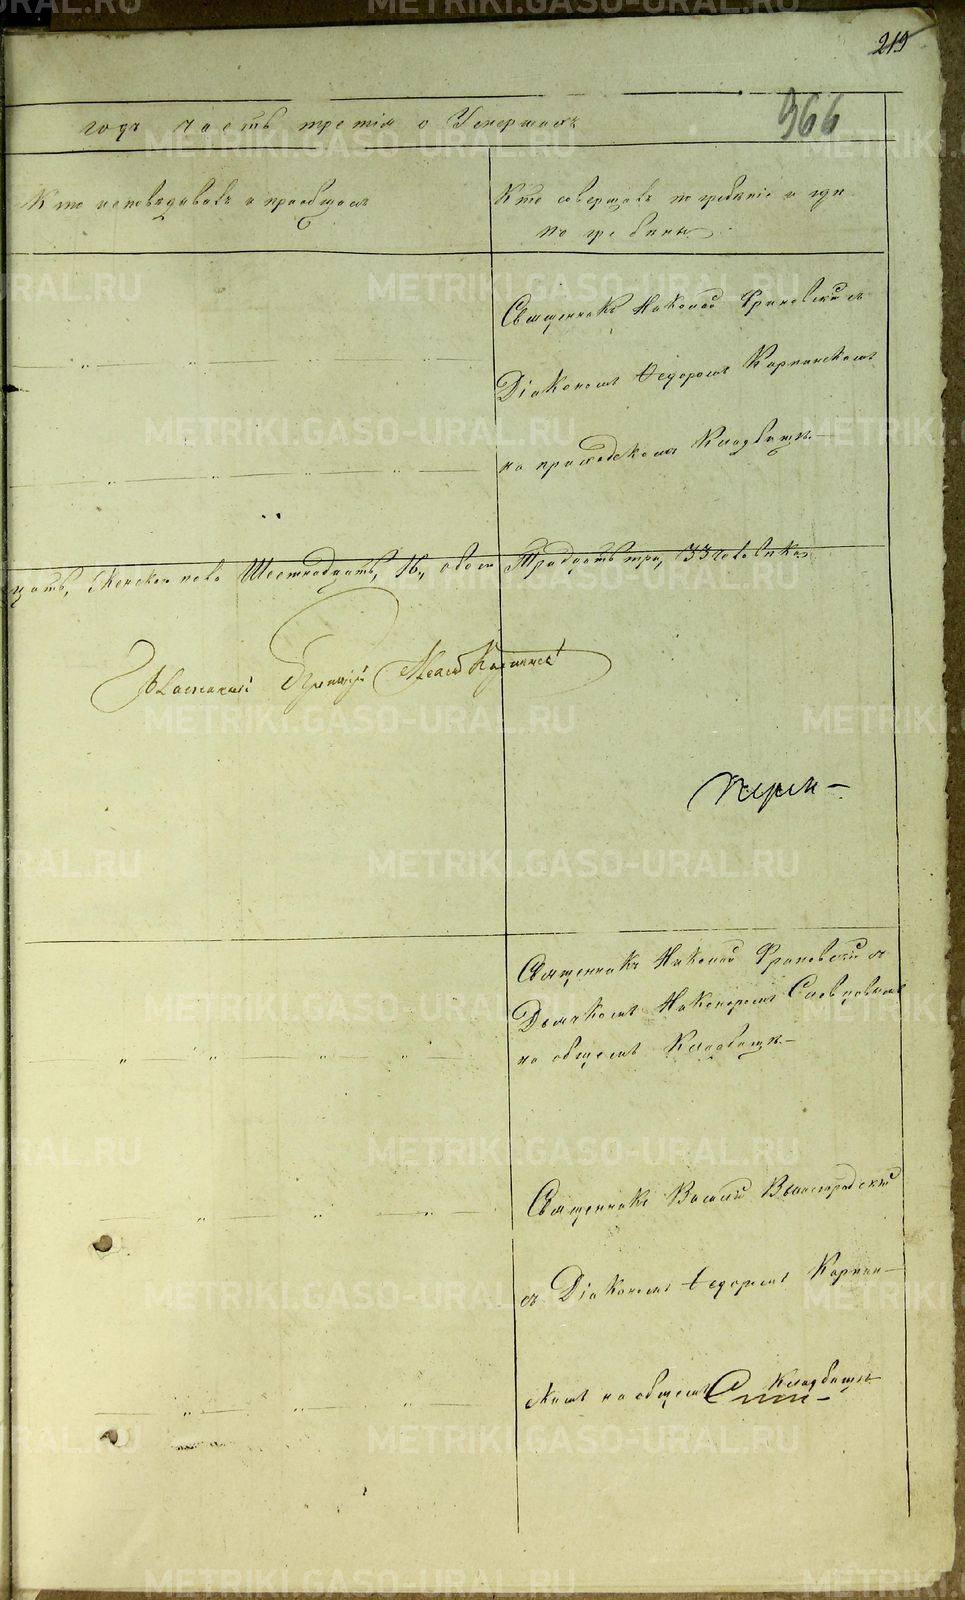 219
366
годъ часть третія о Умершихъ
Кто исповѣдывалъ и пріобщалъ
Кто совершалъ погребеніе и гдѣ
погребены
Священникъ Николай Франовскій съ
Діакономъ Ѳедоромъ Карпинскимъ
на приходскомъ Кладбищѣ.
цать, Женска пола Шестнадцать, 16, обоего Тридцать три, 33 человѣка
Священникъ Николай Франовскій съ
Дьячкомъ Никоноромъ Словцовымъ
на общемъ Кладбищѣ
Священникъ Василій
съ Діакономъ Ѳедоромъ Карпин-
скимъ на общемъ Кладбищѣ
METRIKI.GASO-URAL.RU